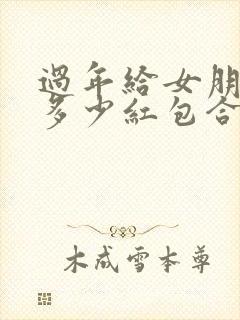 過年給女朋
多少紅包合
木成雪本尊